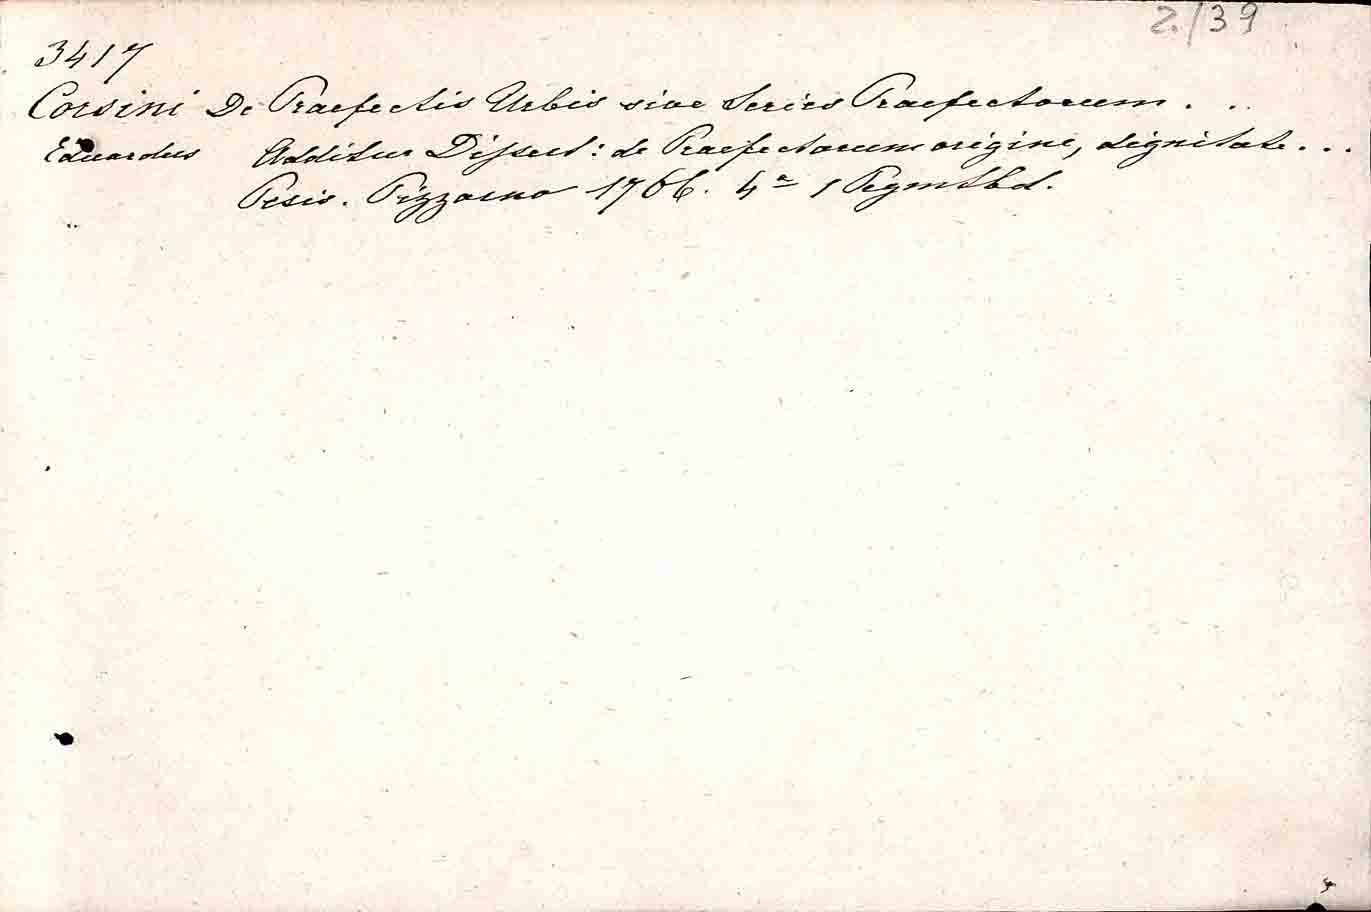 2./39
3417
Corsini De Praefectis Urbis sive Series Praefectorum . . .
Eduardus Additur Dissert: de Praefectorum origine, dignitate . . .
Pisis. Pizzorno 1766. 4° 1 Pgmtbd.